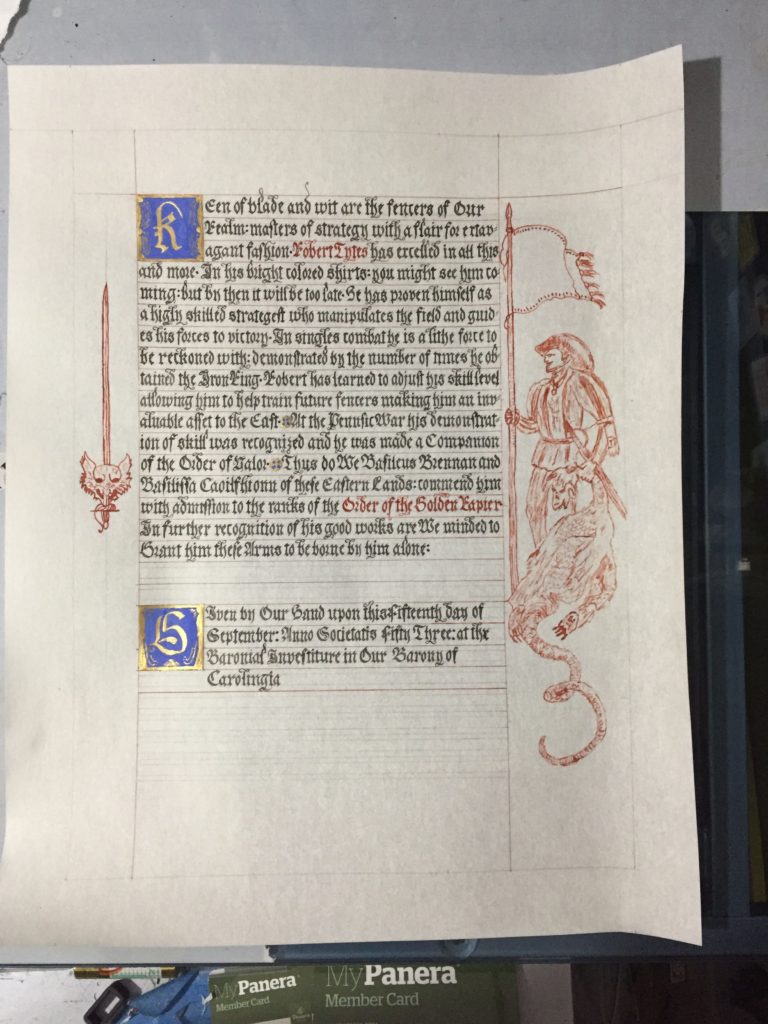 Keen of blade and wit are the fencers of Our
Realm: masters of strategy with a flair for extav-
agant fashion. Robert Tytes has excelled in all this
and more. In his bright colored shirts: you might see him co
ming: but by then it will be too late. He has proven himself as
a higly skilled strategest who manipulates the field and guid
es his forces to victory. In singles combat he is a lithe force to
be reckoned with: demonstrated by the number of times he ob
tained the Iron Ring. Robert has learned to adjust his skill level
allowing him to help train future fencers making him an inv
aluable asset to the East. At the Pennsic War his demonstrat
ion of skill was recognized and he was made a Companion
of the Order of Valor. Thus do We Basileus Brennan and
Basilissa Caoilfhionn of these Eastern Lands: commend him
with admission to the ranks of the Order of the Golden Rapier
In further recognition of his good works are We minded to
Grant him these Arms to be borne by him alone:
Given by Our Hand upon this Fifteenth day of
September: Anno Societatis Fifty Three: at the
Baronial Investiture in Our Barony of
Carolingia
MyPanera
Member Card
MyPanera
Member Card